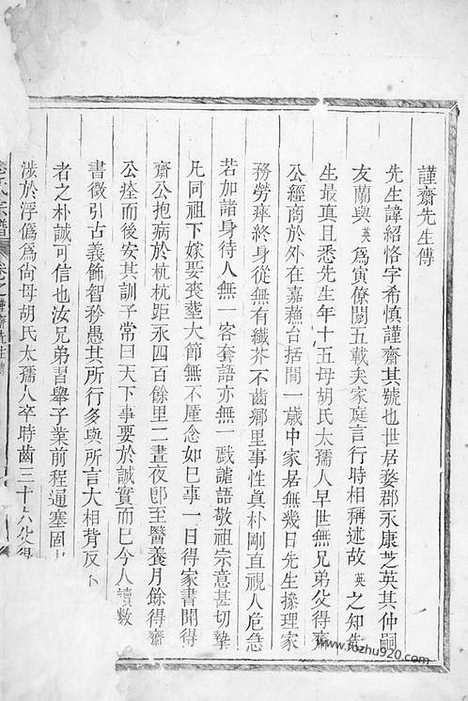 謹齋先生傳
先生諱紹恪字希慎謹齋其號也世居婺郡永康芝英其仲嗣
友蘭與英爲寅僚閱五載矣家庭言行時相稱述故英之知先
生最真且悉先生年十五母胡氏太孺人早世無兄弟父得齋
公經商於外在嘉穐台括間一歲中家居無幾日先生操理家
務勞瘁終身從無有纖芥不齒鄉里事性真朴剛直視人危急
若加諸身待人無一客套語亦無一戲謔語敬祖宗意甚切摯
凡同祖下嫁娶喪塟大節無不厪念如巳事一日得家書聞得
齋公抱病於杭杭距永四百餘里二晝夜即至醫養月餘得齋
公痊而後安其訓子常曰天下事要於誠實而巳今人讀數
書徵引古義飾智矜愚其所行多與所言大相背反
者之朴誠可信也汝兄弟習舉子業前程通塞固
涉於浮僞爲尚母胡氏太孺人卒時齒三十六父得
氏宗譜 卷之 謹齋先生
www.fozhu920.com